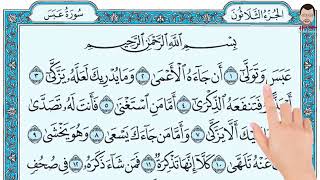 الجزء الثلاثون
سورة عبس
بِسْمِ اللَّهِ الرَّحْمَٰنِ الرَّحِيمِ
عَبَسَ وَتَوَلَّىٰ ١ أَن جَاءَهُ الْأَعْمَىٰ ٢ وَمَا يُدْرِيكَ لَعَلَّهُ يَزَّكَّىٰ ٣
فَتَنفَعَهُ الذِّكْرَىٰ ٤ أَمَّا مَنِ اسْتَغْنَىٰ ٥ فَأَنتَ لَهُ تَصَدَّىٰ
أَلَّا يَزَّكَّىٰ ٧ وَأَمَّا مَن جَاءَكَ يَسْعَىٰ ٨ وَهُوَ يَخْشَىٰ ٩
عَنْهُ تَلَهَّىٰ ١٠ كَلَّا إِنَّهَا تَذْكِرَةٌ ١١ فَمَن شَاءَ ذَكَرَهُ ١٢ فِي صُحُفٍ